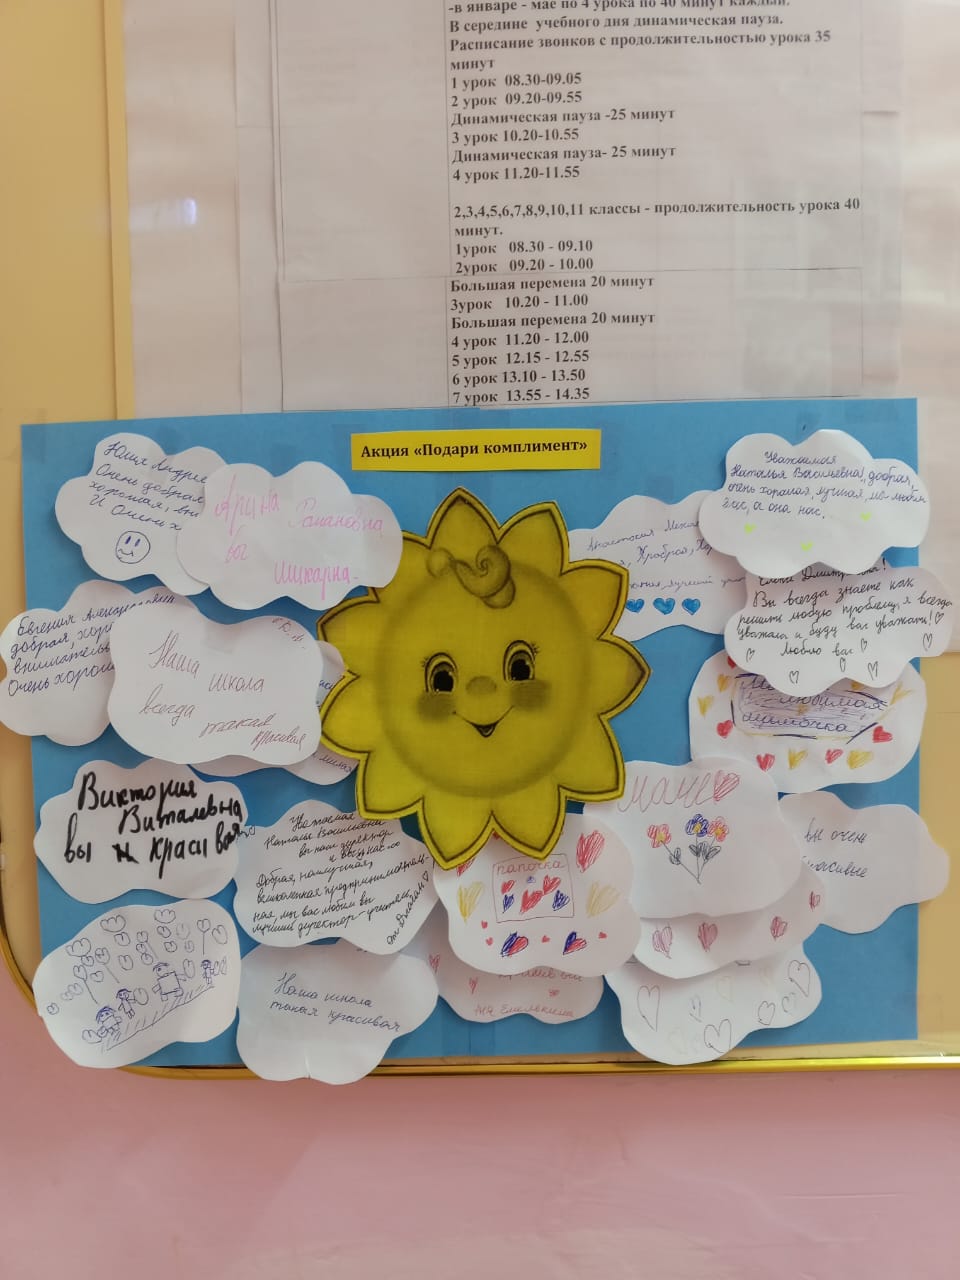 -в январе - мае по 4 урока по 40 минут каждый.
В середине учебного дня динамическая пауза.
Расписание звонков с продолжительностью урока 35
минут
1 урок 08.30-09.05
2 урок 09.20-09.55
Динамическая пауза -25 минут
3 урок 10.20-10.55
Динамическая пауза- 25 минут
4 урок 11.20-11.55
2,3,4,5,6,7,8,9,10,11 классы - продолжительность урока 40
минут.
1урок 08.30 - 09.10
2урок 09.20 - 10.00
Большая перемена 20 минут
3урок 10.20 - 11.00
Большая перемена 20 минут
4 урок 11.20 - 12.00
5 урок 12.15 - 12.55
6 урок 13.10 - 13.50
7 урок 13.55 - 14.35
Акция «Подари комплимент»
Юлия Андрее
Очень добрая
хорошая, вни
И Очень х
Арина
вы
шикарна.
Анастасия
Храбрая, Хо
лучший
Уважаемая
Наталья Васильевна, добрая,
очень хорошая, лучшая, мы любим
Вас, а она нас.
Вы всегда знаете как
решить любую проблему, я всегда
уважала и буду вас уважать!
Люблю вас
Евгения Александровна
добрая, хоро
внимательн
Очень хорош
Наша
школа
всегда
такая
красивая
милая
любимая
мамочка
Виктория
Виталевна
вы красивая
Уважаемая
Наталья Васильевна
вы наш директор
Добрая,
великолепная
ная, мы вас любим вы
лучший директор - учитель
папочка
Маме
вы очень
красивые
Наша школа
такая красивая